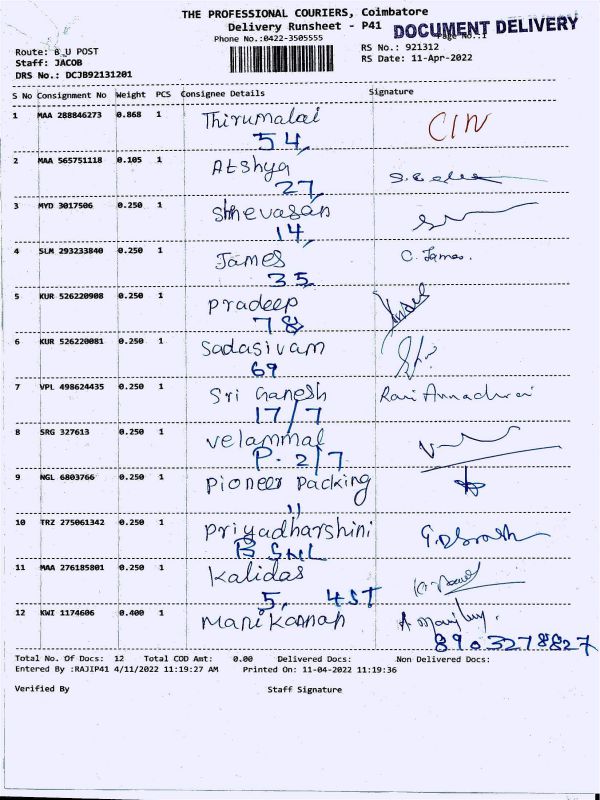 THE PROFESSIONAL COURIERS, Coimbatore
Delivery Runsheet - P41
DOCUMENT DELIVERY
Phone No.:0422-3505555
Page No.:1
Route: B_U POST
RS No.: 921312
Staff: JACOB
RS Date: 11-Apr-2022
DRS No.: DCJB92131201
S No Consignment No Weight PCS Consignee Details Signature
1 MAA 288846273 0.868 1 Thirumalai CIN
54,
2 MAA 565751118 0.105 1 Atshya
27,
3 MYD 3017506 0.250 1 Shhevasan
14,
4 SLM 293233840 0.250 1 James C. James.
35
5 KUR 526220908 0.250 1 Pradeep
78
6 KUR 526220081 0.250 1 Sadasivam
69
7 VPL 498624435 0.250 1 Sri Ganesh
17/7
8 SRG 327613 0.250 1 velammal
P. 2/7
9 NGL 6803766 0.250 1 Pioneer Packing
11
10 TRZ 275061342 0.250 1 Priyadharshini
BSNL
11 MAA 276185801 0.250 1 Kalidas
5, 4ST
12 KWI 1174606 0.400 1 Mani Kannan
8903278827
Total No. Of Docs: 12 Total COD Amt: 0.00 Delivered Docs: Non Delivered Docs:
Entered By :RAJIP41 4/11/2022 11:19:27 AM Printed On: 11-04-2022 11:19:36
Verified By Staff Signature